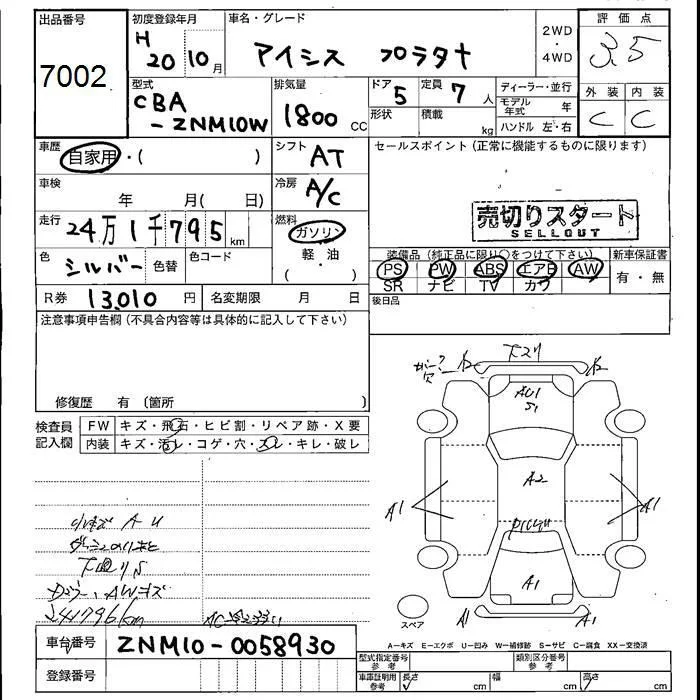 出品番号
7002
初度登録年月
H 20 10月
車名・グレード
アイシス プラタナ
2WD
・
4WD
評価点
3.5
型式
CBA
-ZNM10W
排気量
1800 CC
ドア 5
形状
定員 7 人
積載 kg
ディーラー・並行
モデル年式 年
ハンドル 左・右
外装 内装
C C
車歴
自家用・( )
シフト AT
セールスポイント(正常に機能するものに限ります)
車検
年 月( 日)
冷房 A/C
売切りスタート
SELLOUT
走行
24万1千795km
燃料
ガソリン
軽・油
( )
色 シルバー 色替
色コード
装備品(純正品に限り○をつけて下さい)
新車保証書
PS PW ABS エアB AW
SR ナビ TV カワ
有・無
R券 13,010 円
名変期限 月 日
後日品
注意事項申告欄(不具合内容等は具体的に記入して下さい)
修復歴 有〔箇所 〕
検査員
記入欄
FW キズ・飛石・ヒビ割・リペア跡・X要
内装 キズ・汚レ・コゲ・穴・スレ・キレ・破レ
下スリ
AU1
S1
A2
A1
A1
A1
A1
A1
スペア
小キズ A U
下回りS
AWキズ
241796km
車台番号 ZNM10-0058930
登録番号
A-キズ E-エクボ U-凹み W-補修跡 S-サビ C-腐食 XX-交換済
型式指定番号
参考
類別区分番号
参考
車庫証明用
参考
長さ cm
幅 cm
高さ cm